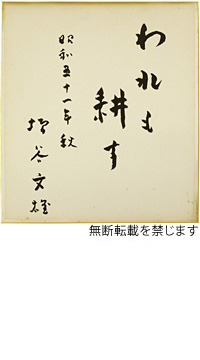 われも
耕す
昭和五十一年秋
増谷文雄
無断転載を禁じます